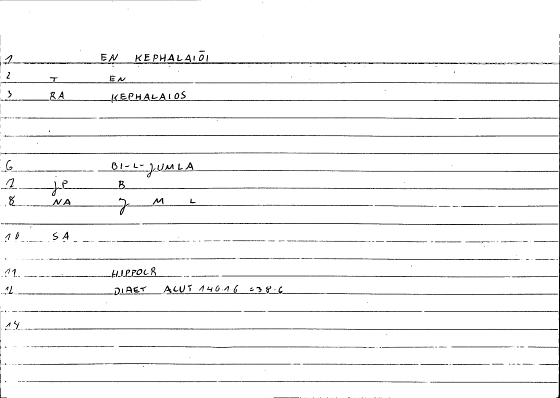 1 EN KEPHALAIŌI
2 T EN
3 RA KEPHALAIOS
6 BI-L-JUMLA
7 JP B
8 NA J M L
10 SA
11 HIPPOCR
12 DIAET ACUT 140 16 = 38.6
14